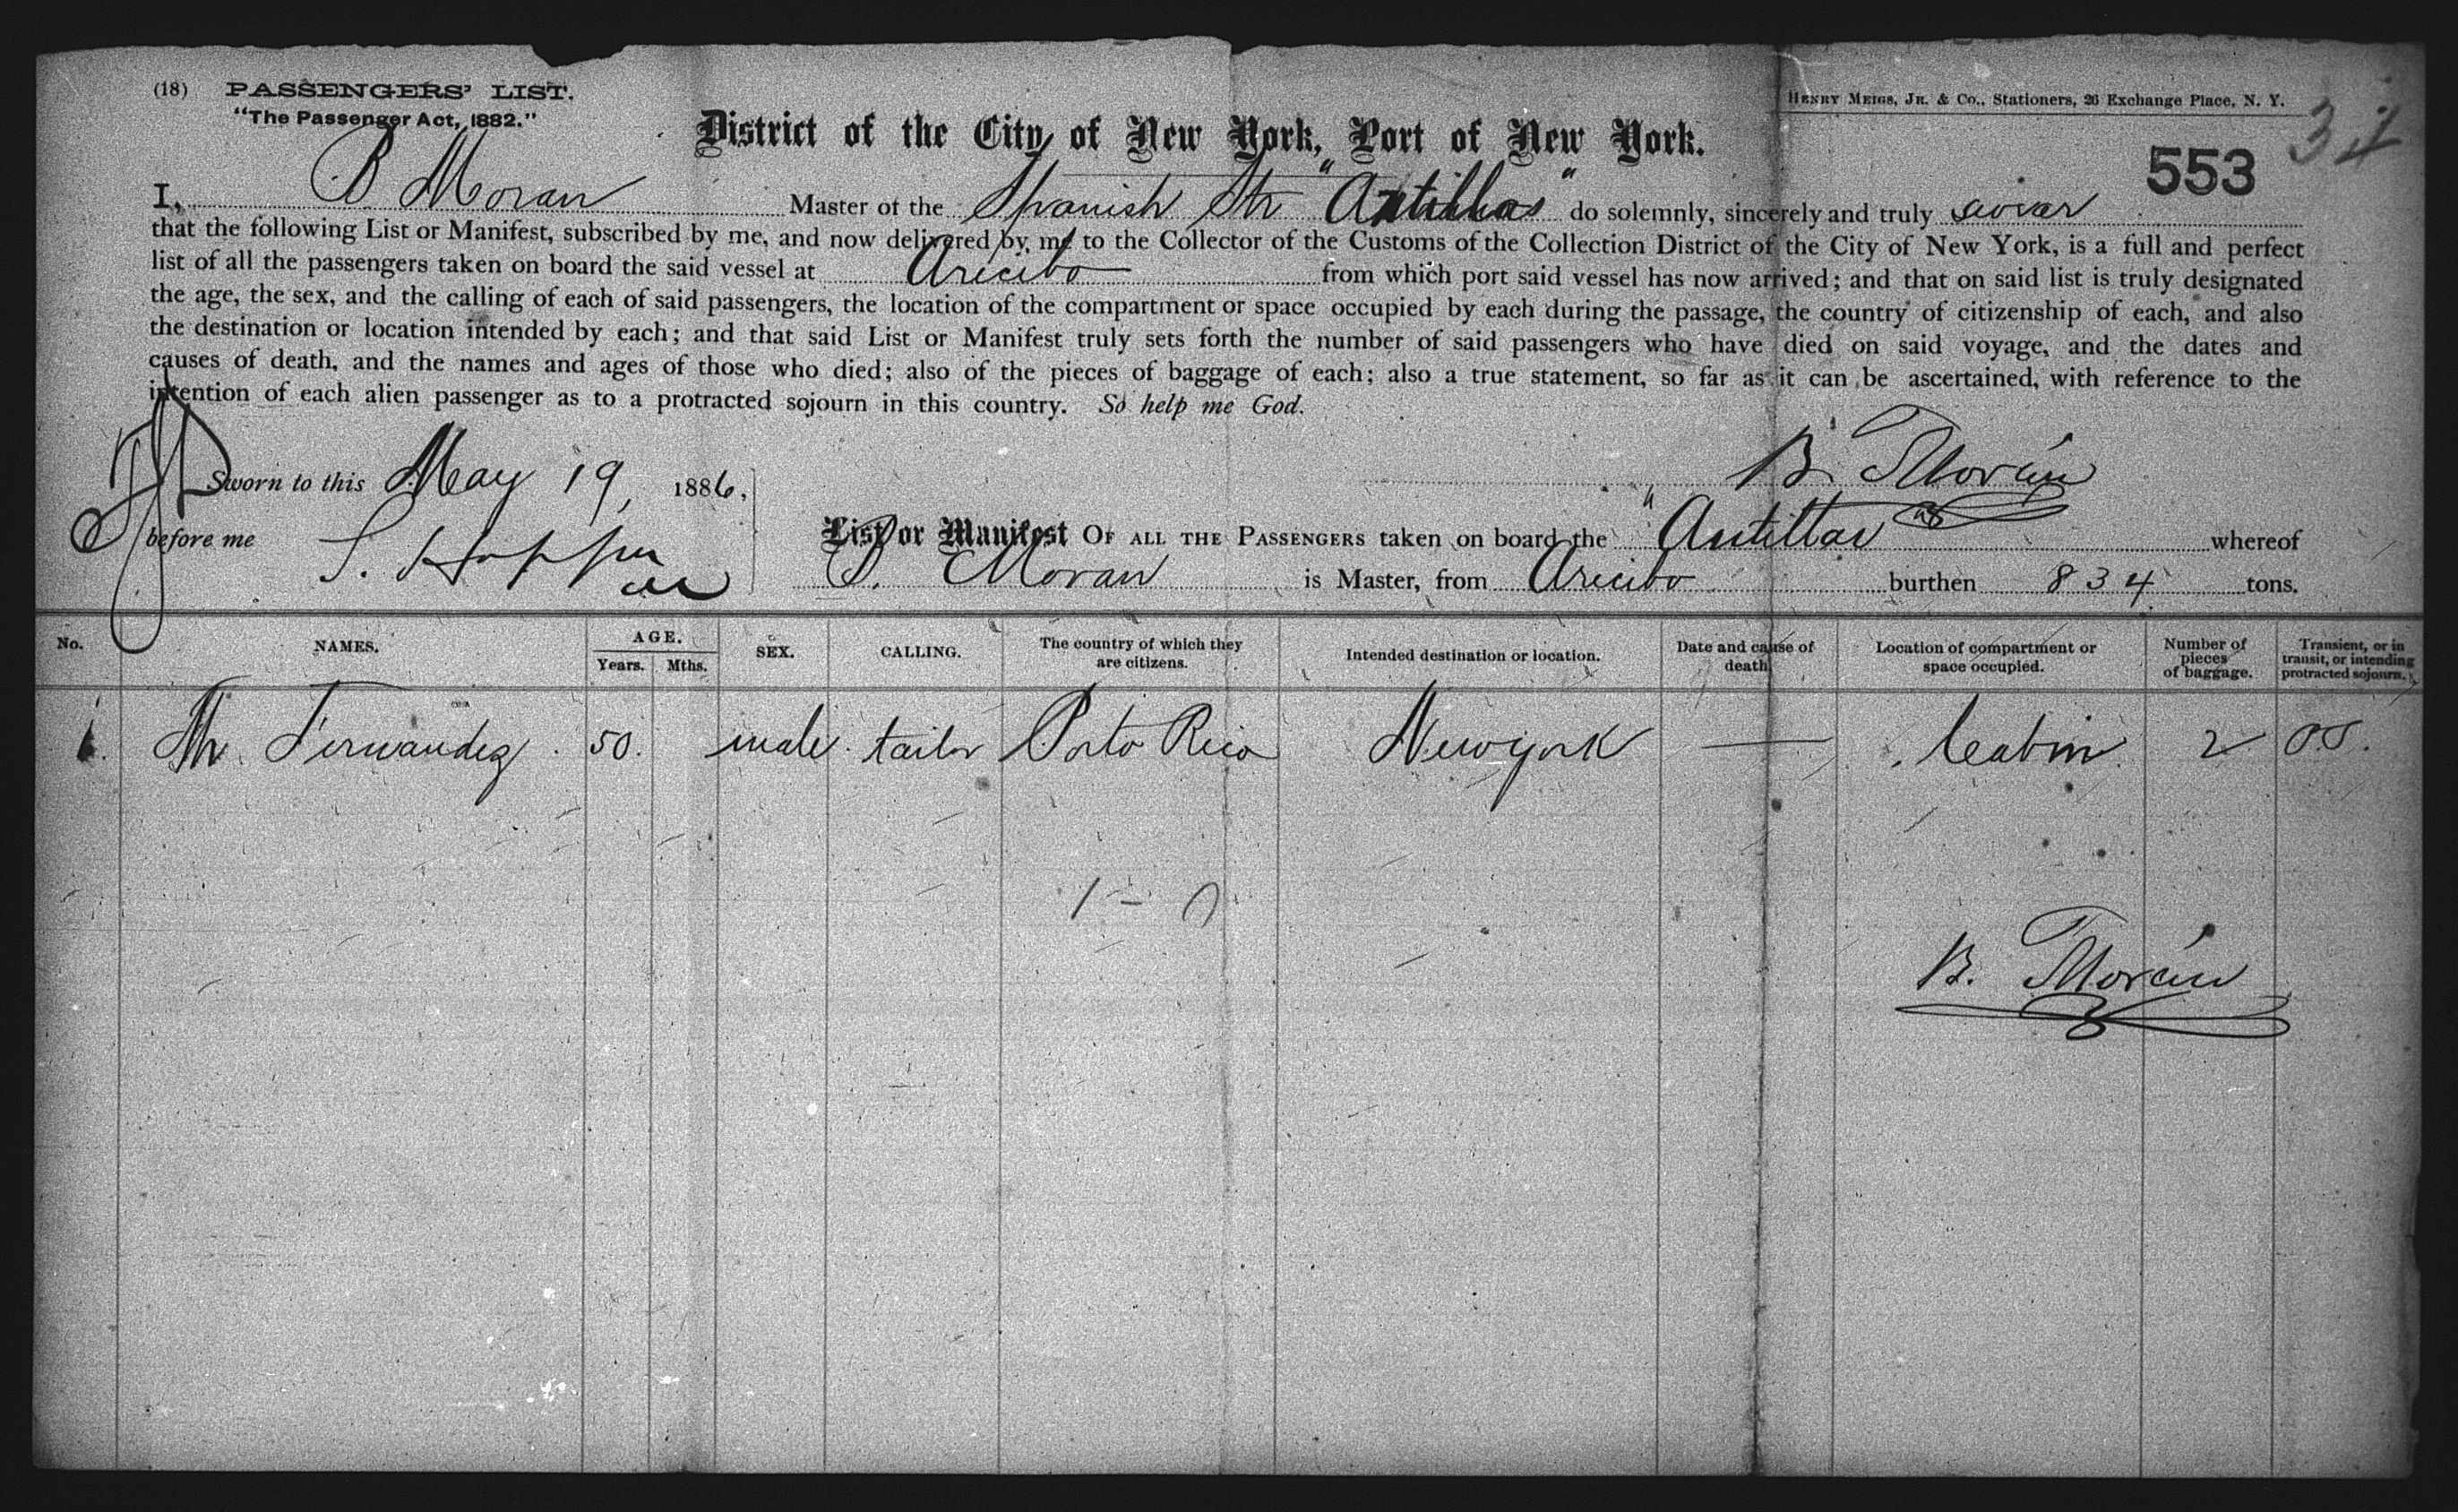 (18) PASSENGERS' LIST.
"The Passenger Act, 1882."
HENRY MEIGS, JR. & Co., Stationers, 26 Exchange Place, N. Y.
District of the City of New York, Port of New York.
553
I, B Moran Master of the Spanish Str "Antillas" do solemnly, sincerely and truly swear
that the following List or Manifest, subscribed by me, and now delivered by me to the Collector of the Customs of the Collection District of the City of New York, is a full and perfect
list of all the passengers taken on board the said vessel at Arecibo from which port said vessel has now arrived; and that on said list is truly designated
the age, the sex, and the calling of each of said passengers, the location of the compartment or space occupied by each during the passage, the country of citizenship of each, and also
the destination or location intended by each; and that said List or Manifest truly sets forth the number of said passengers who have died on said voyage, and the dates and
causes of death, and the names and ages of those who died; also of the pieces of baggage of each; also a true statement, so far as it can be ascertained, with reference to the
intention of each alien passenger as to a protracted sojourn in this country. So help me God.
B. Morán
Sworn to this May 19, 1886,
before me
List or Manifest OF ALL THE PASSENGERS taken on board the "Antillas" whereof
B. Moran is Master, from Arecibo burthen 834 tons.
No. NAMES. AGE. Years. Mths. SEX. CALLING. The country of which they are citizens. Intended destination or location. Date and cause of death. Location of compartment or space occupied. Number of pieces of baggage. Transient, or in transit, or intending protracted sojourn.
1. Fernandez 50. male tailor Porto Rico Newyork — Cabin 2 P.S.
B. Morán